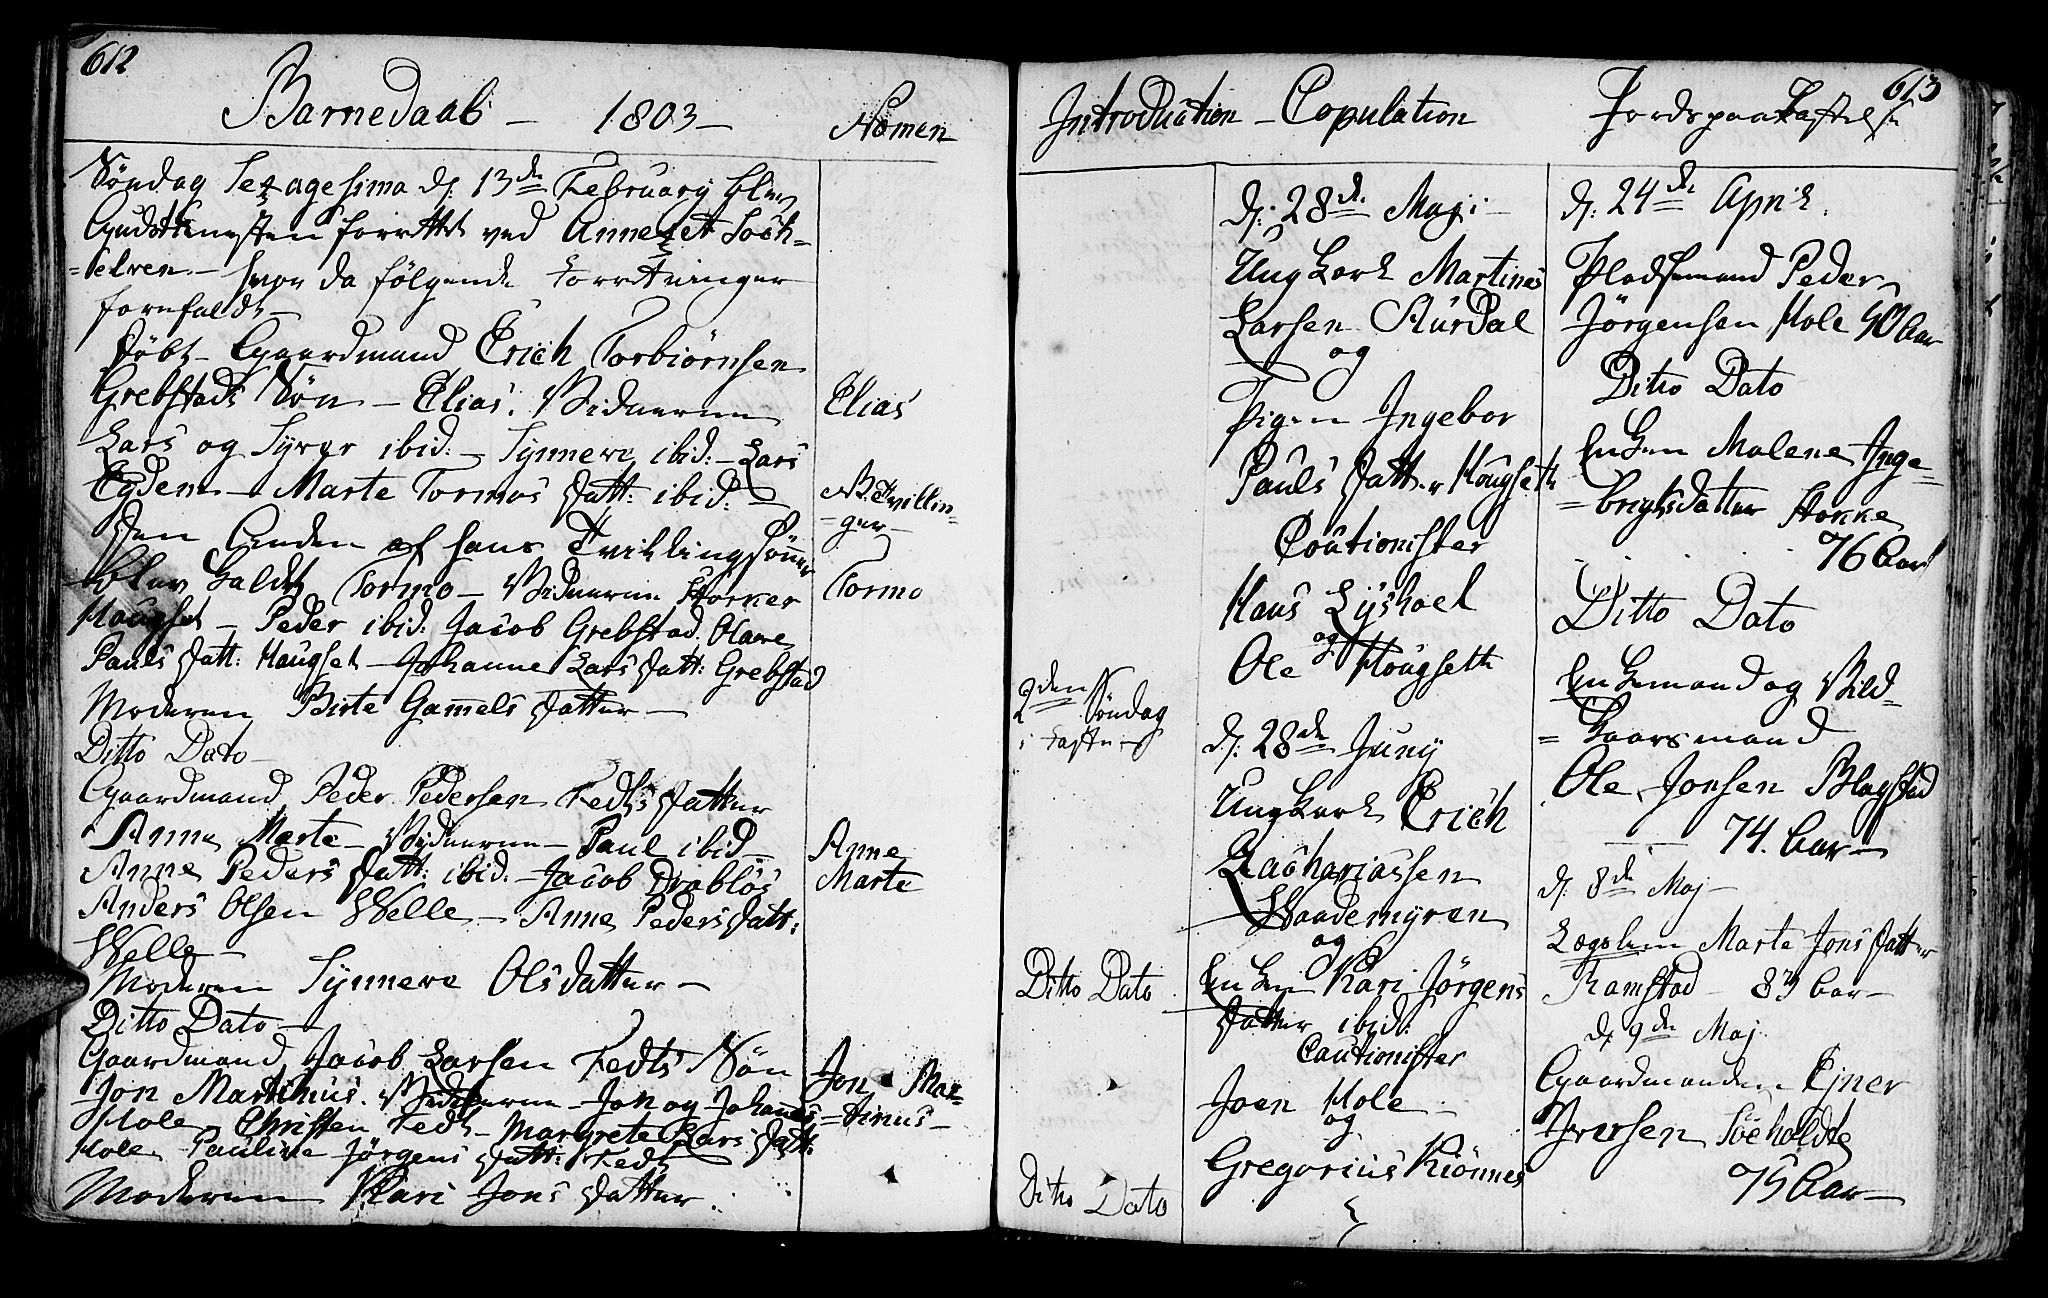 612
Barnedaab – 1803 –
Nomen
Søndag Sexagesima d: 13de February blev
Gudstienesten forrettet ved Annexet Søch=
=elven – hvor da følgende Forretninger
forefaldt –
Døbt – Gaardmand Erich Torbiørnsen
Grebstads Søn – Elias. Vidnerne
Lars og Syver ibid: – Synneve ibid: – Lars
Eyden – Marte Tormos Datt: ibid: –
Den Enden af hans Tvillingsønner
blev kaldt Tormo – Vidnerne Storker
Hougset – Peder ibid: Jacob Grebstad. Olave
Pauls Datt: Hougset – Johanne Lars Datt: Grebstad
Moderen Birte Gamels Datter –
Ditto Dato –
Gaardmand Peder Pedersen Fedts Datter
Anne Marte – Vidnerne – Paul ibid –
Anne Peders Datt: ibid. – Jacob Drabløs
Anders Olsen Welle – Anne Peders Datt:
Welle –
Moderen Synneve Olsdatter –
Ditto Dato –
Gaardmand Jacob Larsen Fedts Søn
Jon Martinus. Vidnerne – Jon og Johannes
Hole Christen Fedt – Margrete Lars Datt:
Hole Pauline Jørgens Datt: Fedt
Moderen Kari Jons Datter
Elias
NB Tvillin=
=ger –
Tormo
Anne
Marte
Jon Mar=
=tinus –
613
Introduction – Copulation
Jordspaakastelse
2den Søndag
i Fasten
Ditto Dato
Ditto Dato
d: 28de Maji –
Ungkarl Martines
Larsen Aurdal
og
Pigen Ingebor
Pauls Datter Hougseth
Coutionister
Hans Lyshoel
og
Ole Hougseth
d: 28de Juny
Ungkarl Erich
Zachariassen
Waademyren
og
Enken Kari Jørgens
Datter ibid:
Cautionister
Joen Hole
og
Gregorius Kiønnes
d: 24de April
Pladsemand Peder
Jørgensen Hole 90 Aar
Ditto Dato
Enken Malene Inge=
=brigtsdatter Stokke
76 Aar
Ditto Dato
Enkemand og Vild=
=kaarsmand
Ole Jonsen Blagstad
74. Aar –
d: 8de Maj –
Lægslem Marte Jons Datter
Ramstad – 83 Aar –
d: 9de Maj
Gaardmanden Ejner
Iversen Søeholdte
75 Aar –